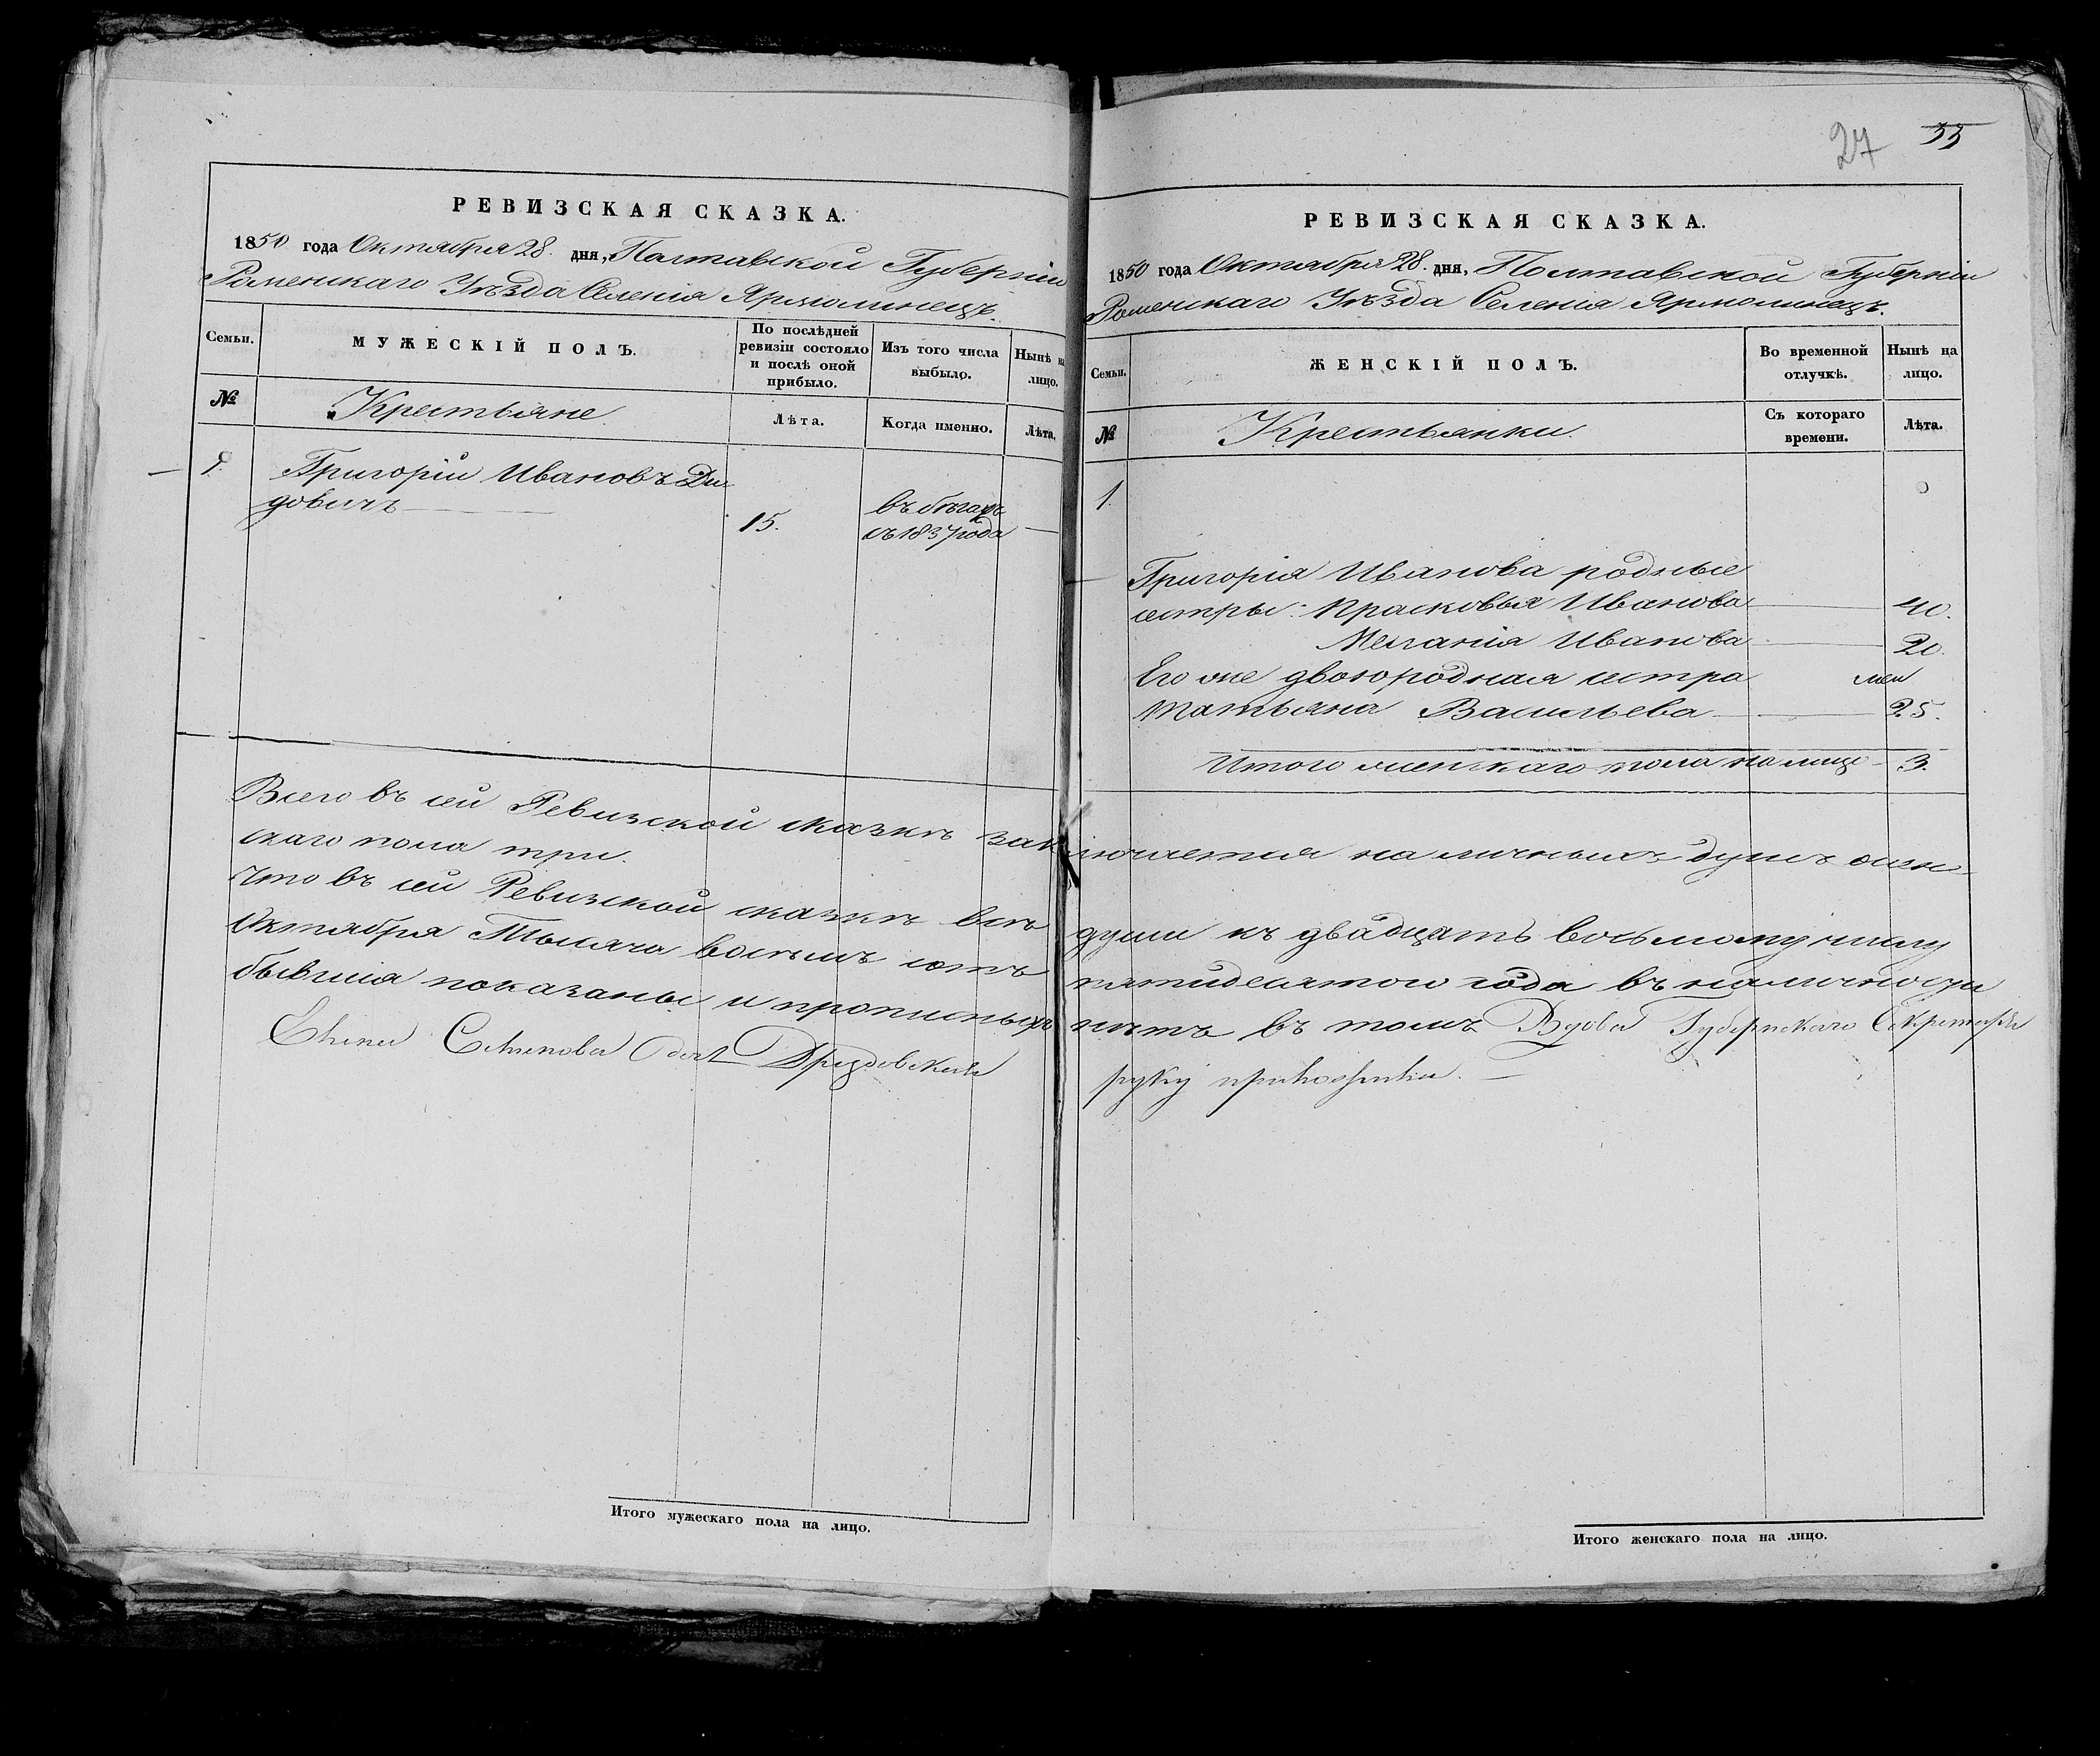 РЕВИЗСКАЯ СКАЗКА.
1850 года Октября 28. дня, Полтавской Губерніи
Роменскаго Уѣзда Селенія Ярмолинецъ.
Семьи.
МУЖЕСКІЙ ПОЛЪ.
По послѣдней
ревизіи состояло
и послѣ оной
прибыло.
Изъ того числа
выбыло.
Нынѣ на
лицо.
№
Крестьяне.
Лѣта.
Когда именно.
Лѣта.
1.
Григорій Ивановъ Ди
довичъ
15.
въ бѣгахъ
съ 1837 года
27 53
РЕВИЗСКАЯ СКАЗКА.
1850 года Октября 28. дня, Полтавской Губерніи
Роменскаго Уѣзда Селенія Ярмолинецъ.
Семьи.
ЖЕНСКІЙ ПОЛЪ.
Во временной
отлучкѣ.
Нынѣ на
лицо.
№
Крестьянки.
Съ котораго
времени.
Лѣта.
1.
Григорія Иванова родные
сестры: Прасковья Иванова 40.
Меланія Иванова 20.
Его же двоюродная сестра
Татьяна Васильева 25.
Итого женскаго пола на лицо 3.
Всего въ сей Ревизской сказкѣ заключается наличныхъ душъ жен-
скаго пола три.
Что въ сей Ревизской сказкѣ всѣ души къ двадцать восьмому числу
Октября Тысяча восемь сотъ пятидесятого года въ наличности
бывшія показаны и прописныхъ нѣтъ въ томъ Вдова Губернскаго Секретаря
Елена Семенова дочь руку приложила.
Итого мужескаго пола на лицо.
Итого женскаго пола на лицо.